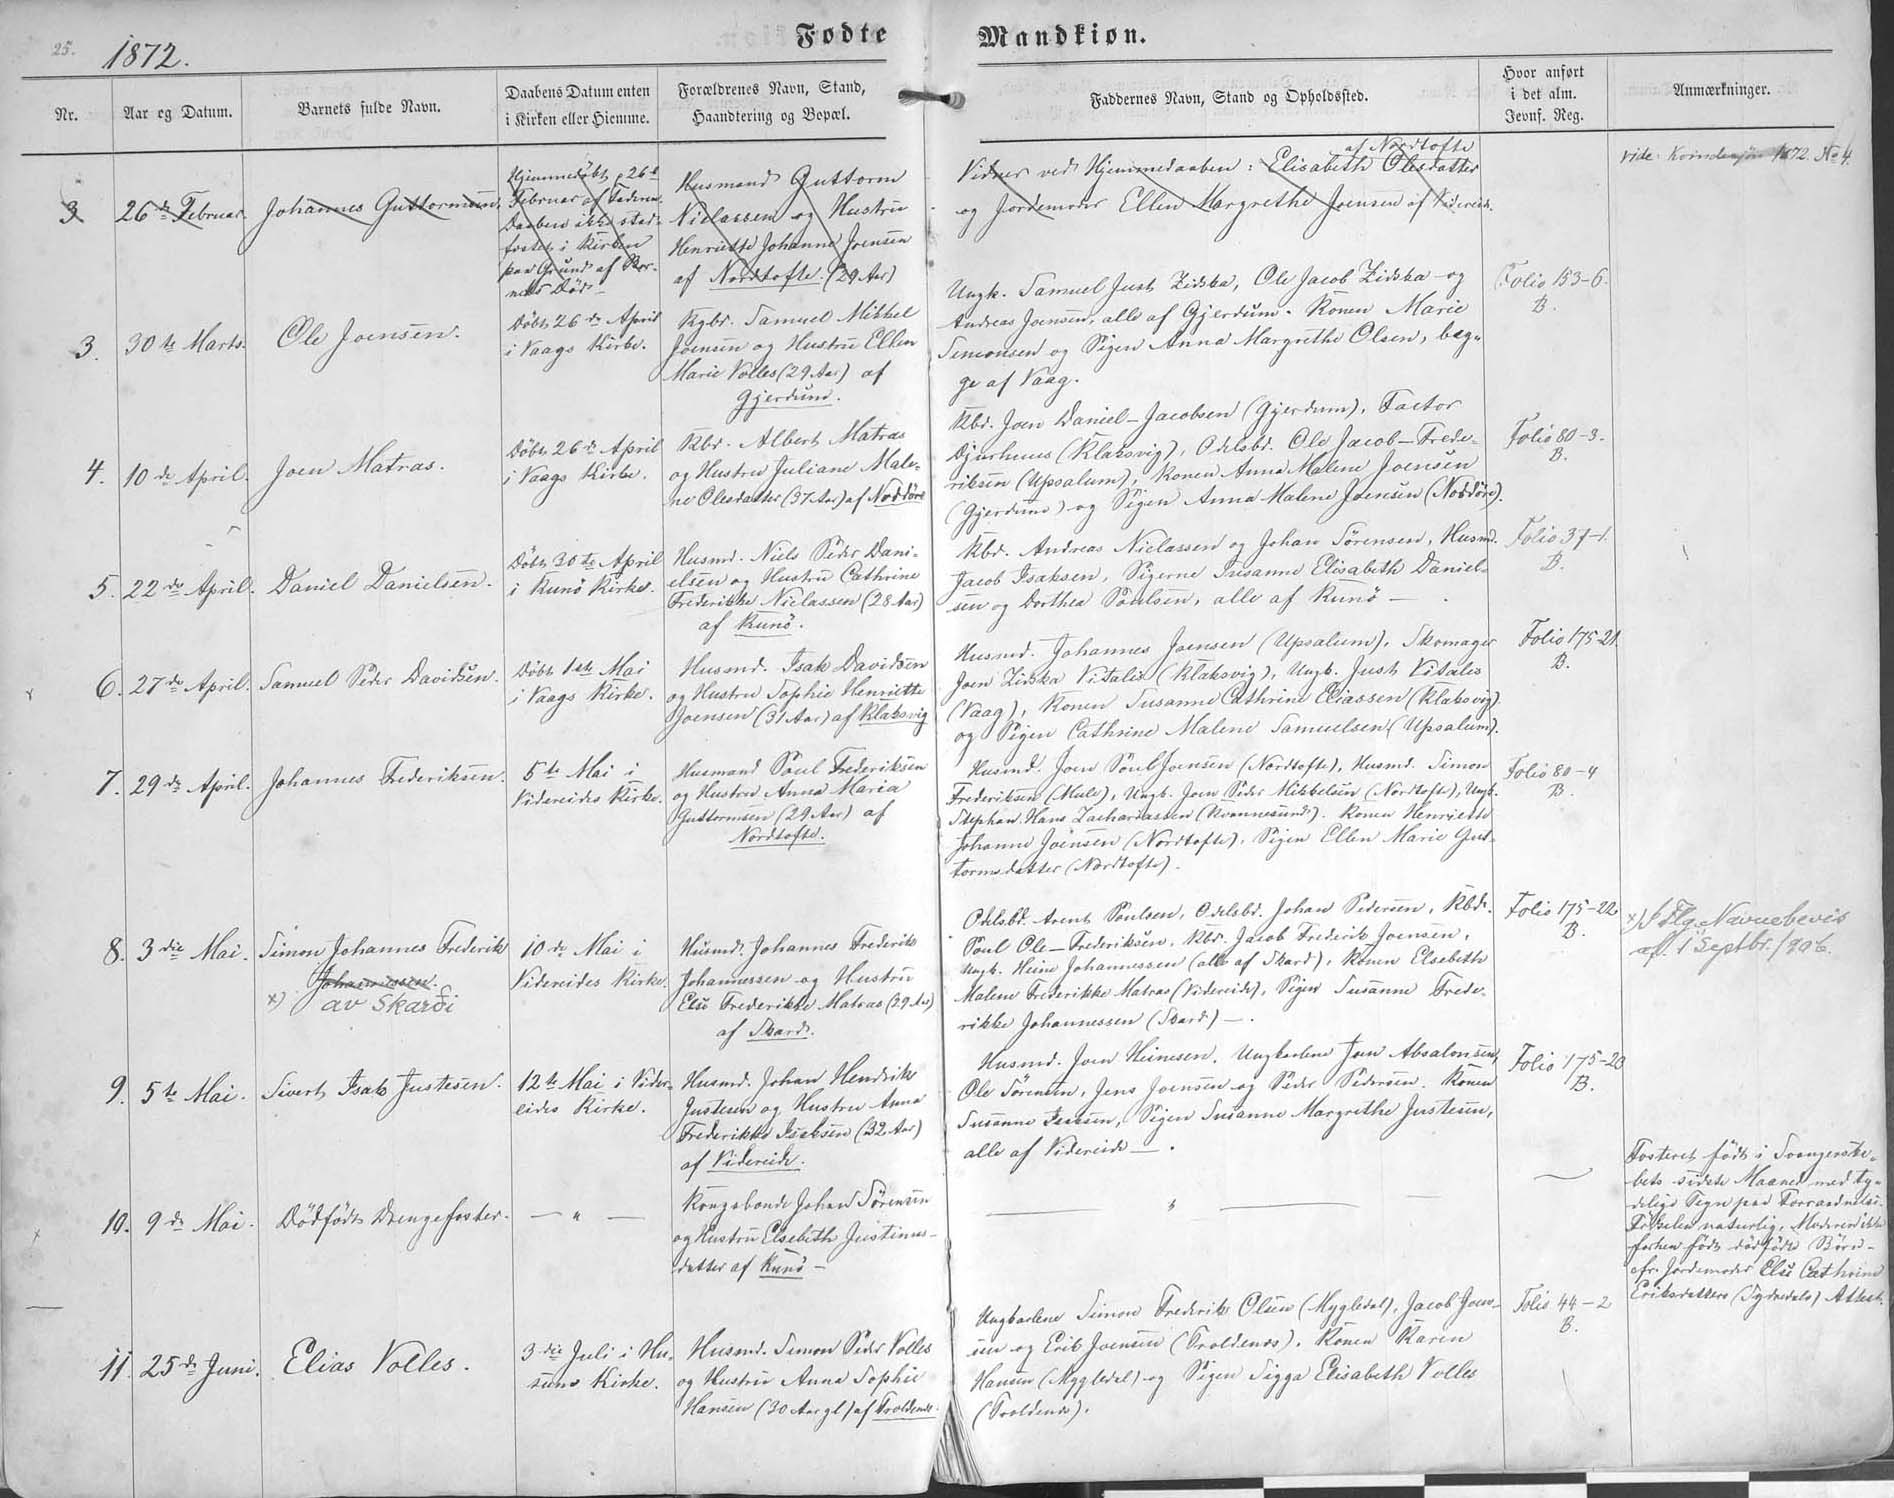 25.
1872.
Fødte
Mandkiøn.
Nr.
Aar og Datum.
Barnets fulde Navn.
Daabens Datum enten
i Kirken eller Hjemme.
Forældrenes Navn, Stand,
Haandtering og Bopæl.
Faddernes Navn, Stand og Opholdssted.
Hvor anført
i det alm.
Jevnf. Reg.
Anmærkninger.
3
26de Februar.
Johannes Guttormsen.
Hjemmedøbt 26de
Februar af Faderen.
Daaben ikke stad-
fæstet i Kirken
paa Grund af Bar-
nets Død
Husmand Guttorm
Nielassen og Hustru
Henriette Johanne Joensen
af Nordtofte. (29 Aar)
af Nordtofte
Vidner ved Hjemmedaaben: Elisabeth Olesdatter
og Jordemoder Ellen Margrethe Joensen af Videreide.
vide Kvindekjøn 1872. No 4.
3.
30te Marts.
Ole Joensen.
Døbt 26de April
i Vaags Kirke.
Kgbd. Samuel Mikkel
Joensen og Hustru Ellen
Marie Volles (29 Aar) af
Gjerdum.
Ungk. Samuel Just Ziska, Ole Jacob Ziska og
Andreas Joensen, alle af Gjerdum. Konen Marie
Simonsen og Pigen Anna Margrethe Olsen, beg-
ge af Vaag.
Folio 153-6.
B.
4.
10de April.
Joen Matras.
Døbt 26de April
i Vaags Kirke.
Kbd. Albert Matras
og Hustru Juliane Male-
ne Olesdatter (37 Aar) af Norddøre
Kbd. Joen Daniel Jacobsen (Gjerdum), Factor
Djurhuus (Klaksvig), Odelsbd. Ole Jacob Frede-
riksen (Upsalum), Konen Anna Malene Joensen
(Gjerdum) og Pigen Anna Malene Joensen (Norddøre).
Folio 80-3.
B.
5.
22de April.
Daniel Danielsen.
Døbt 30te April
i Kunø Kirke.
Husmd. Niels Peder Dani-
elsen og Hustru Cathrine
Frederikke Nielassen (28 Aar)
af Kunø.
Kbd. Andreas Nielassen og Johan Sørensen, Husmd.
Jacob Isaksen, Pigerne Susanne Elisabeth Daniel-
sen og Dorthea Poulsen, alle af Kunø —.
Folio 37-1.
B.
6.
27de April.
Samuel Peder Davidsen.
Døbt 1ste Mai
i Vaags Kirke.
Husmd. Isak Davidsen
og Hustru Sophie Henriette
Joensen (31 Aar) af Klaksvig
Husmd. Johannes Joensen (Upsalum), Skomager
Joen Ziska Vitalis (Klaksvig), Ungk. Just Vitalis
(Vaag), Konen Susanne Cathrine Eliassen (Klaksvig).
og Pigen Cathrine Malene Samuelsen (Upsalum).
Folio 175-21.
B.
7.
29de April.
Johannes Frederiksen.
5te Mai i
Videreides Kirke.
Husmand Poul Frederiksen
og Hustru Anna Maria
Guttormsen (29 Aar) af
Nordtofte.
Husmd. Joen Poul Joensen (Nordtofte), Husmd. Simon
Frederiksen (Mule), Ungk. Joen Peder Mikkelsen (Nordtofte), Ungk.
Stephan Hans Zachariassen (Kvannesund). Konen Henriette
Johanne Joensen (Nordtofte), Pigen Ellen Marie Gut-
tormsdatter (Nordtofte).
Folio 80-4
B.
8.
3die Mai.
Simon Johannes Frederik
Johannessen.
x) av Skarði
10de Mai i
Videreides Kirke.
Husmd. Johannes Frederik
Johannessen og Hustru
Else Frederikke Matras (39 Aar)
af Skard.
Odelsbd. Arent Poulsen, Odelsbd. Johan Pedersen, Kbd.
Poul Ole Frederiksen, Kbd. Jacob Frederik Joensen,
Ungk. Heine Johannessen (alle af Skard), Konen Elsebeth
Malene Frederikke Matras (Videreide), Pigen Susanne Frede-
rikke Johannessen (Skard) —.
Folio 175-22
B.
x) Iflg. Navnebevis
af 1 Septbr. 1906.
9.
5te Mai.
Sivert Isak Justesen.
12te Mai i Vider-
eides Kirke.
Husmd. Johan Hendrik
Justesen og Hustru Anna
Frederikke Isaksen (32 Aar)
af Videreide.
Husmd. Joen Heinesen, Ungkarlene Joen Absalonsen,
Ole Sørensen, Jens Joensen og Peder Pedersen. Konen
Susanne Isaksen, Pigen Susanne Margrethe Justesen,
alle af Videreide —.
Folio 175-23
B.
10.
9de Mai.
Dødfødt Drengefoster.
— " —
Kongsbonde Johan Sørensen
og Hustru Elsebeth Justinus-
datter af Kunø —
— " —
Fosteret født i Svangerska-
bets sidste Maaned med ty-
delige Tegn paa Forraadnelse.
Fødselen naturlig, Moderen ikke
forhen født dødfødte Børn -
cfr. Jordemoder Else Cathrine
Eriksdatters (Sydredals) Attest.
11.
25de Juni.
Elias Volles.
3die Juli i Hu-
sums Kirke.
Husmd. Simon Peder Volles
og Hustru Anna Sophie
Hansen (30 Aar gl) af Troldenæs.
Ungkarlene Simon Frederik Olsen (Mygledal), Jacob Joen-
sen og Erik Joensen (Troldenæs). Konen Karen
Hansen (Mygledal) og Pigen Sigga Elisabeth Volles
(Troldenæs).
Folio 44-2
B.